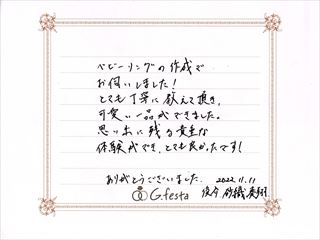 ベビーリングの作成で
お伺いしました！
とても丁寧に教えて頂き、
可愛い一品ができました。
思い出に残る貴重な
体験ができ、とても良かったです！
ありがとうございました。 2022.11.11
G.festa